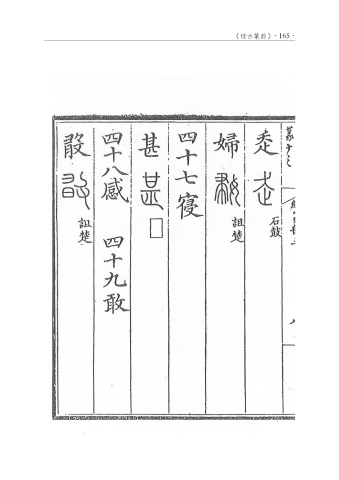 《续古篆韵》· 165 ·
石鼓
婦 詛楚
四十七寑
甚 □
四十八感 四十九敢
敢 詛楚